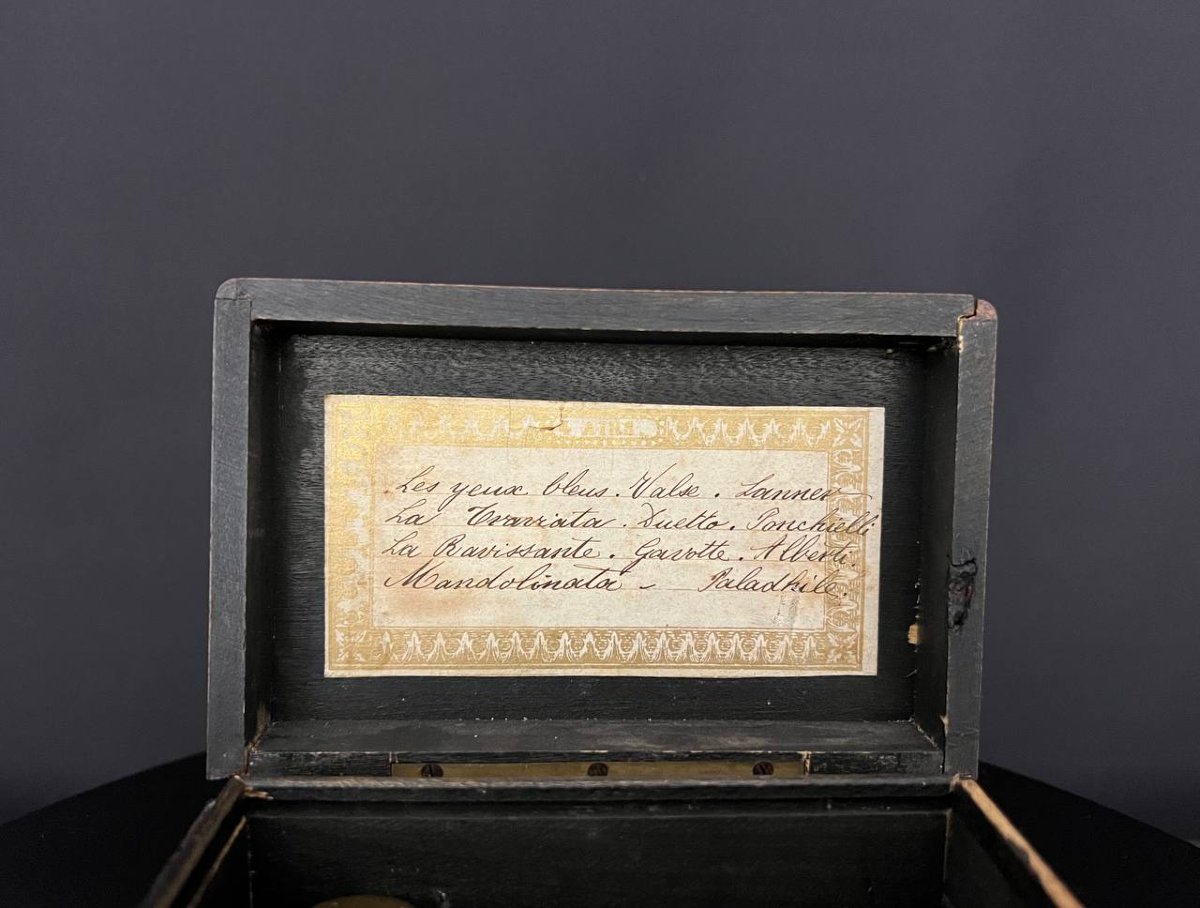 Les yeux bleus. Valse. Lanner
La Travviata. Duetto. Ponchielli
La Ravissante. Gavotte. Alberti.
Mandolinata - Paladhile.